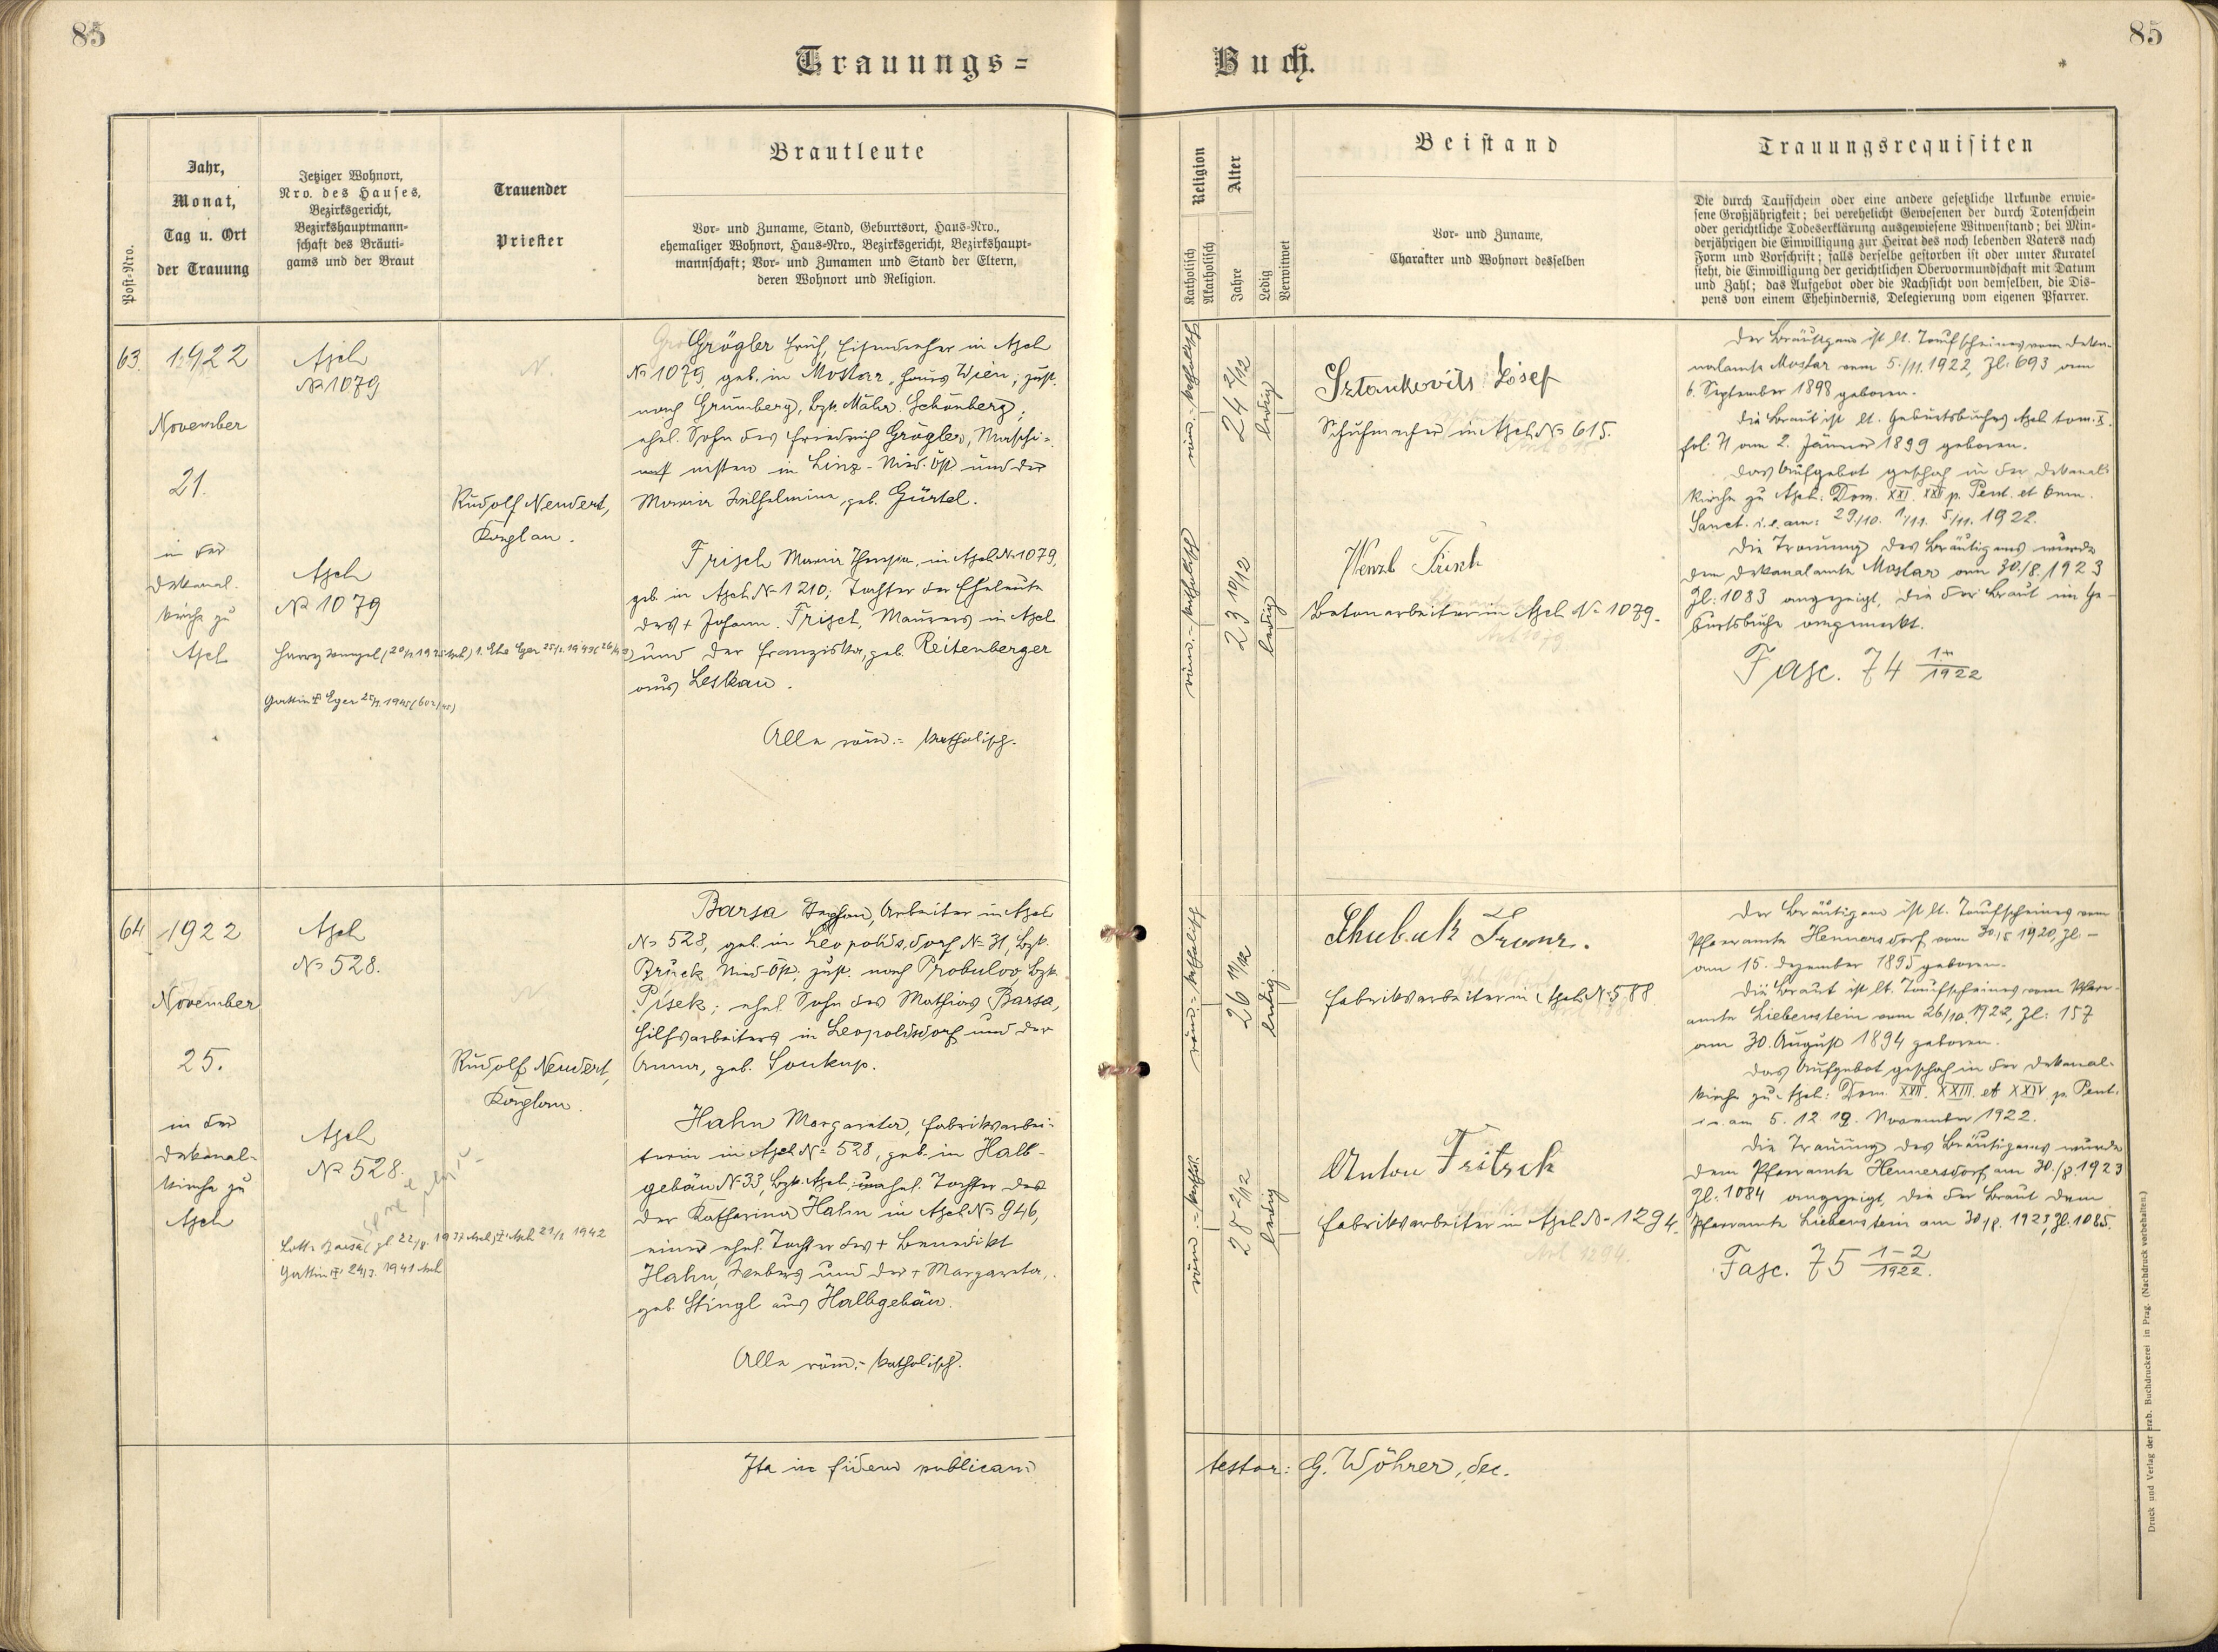 85
Trauungs=
Post-Nro.
Jahr,
Monat,
Tag u. Ort
der Trauung
Jetziger Wohnort,
Nro. des Hauses,
Bezirksgericht,
Bezirkshauptmann-
schaft des Bräuti-
gams und der Braut
Trauender
Priester
Brautleute
Vor- und Zuname, Stand, Geburtsort, Haus-Nro.,
ehemaliger Wohnort, Haus-Nro., Bezirksgericht, Bezirkshaupt-
mannschaft; Vor- und Zunamen und Stand der Eltern,
deren Wohnort und Religion.
63.
1922
November
21.
in der
Dekanal-
kirche zu
Asch
Asch
№ 1079
Asch
№ 1079
Gattin Eger 1945
N.
Rudolf Neudert,
Kaplan.
Grögler Erich, Eisendreher in Asch
№ 1079, geb. in Mostar, Wien; zust.
nach Grumberg, Bzk. Mähr. Schönberg;
ehel. Sohn des Friedrich Grögler, Maschi-
in Linz - und der
Maria Wilhelmine, geb. Gürtel.
Frisch Maria Theresia, in Asch № 1079,
geb. in Asch № 1210; Tochter der Eheleute
des + Johann Frisch, Maurers in Asch
und der Franziska, geb. Reitenberger
aus Leskau.
Alle röm.- katholisch.
64
1922
November
25.
in der
Dekanal-
kirche zu
Asch
Asch
№ 528.
Asch
№ 528.
1942
Gattin 1941 Asch
N
Rudolf Neudert,
Kaplan.
Barsa Stephan, Arbeiter in Asch
№ 528, geb. in Leopoldsdorf № 31, Bzk.
Bruck, Nied-Öst; zust. nach Probulov, Bzk.
Pisek; ehel. Sohn des Mathias Barsa,
Hilfsarbeiters in Leopoldsdorf und der
Anna, geb. Soukup.
Hahn Margareta, Fabriksarbei-
terin in Asch № 528, geb. in Halb-
gebäu № 33, Bzk. Asch; unehel. Tochter der
der Katharina Hahn in Asch № 946,
einer ehel. Tochter des + Benedikt
Hahn, Webers und der + Margareta,
geb. Stingl aus Halbgebäu.
Alle röm.- katholisch.
Ita in fidem publicam
85
Buch.
Religion
Katholisch
Akatholisch
Alter
Jahre
Ledig
Verwitwet
Beistand
Vor- und Zuname,
Charakter und Wohnort desselben
Trauungsrequisiten
Die durch Taufschein oder eine andere gesetzliche Urkunde erwie-
sene Großjährigkeit; bei verehelicht Gewesenen der durch Totenschein
oder gerichtliche Todeserklärung ausgewiesene Witwenstand; bei Min-
derjährigen die Einwilligung zur Heirat des noch lebenden Vaters nach
Form und Vorschrift; falls derselbe gestorben ist oder unter Kuratel
steht, die Einwilligung der gerichtlichen Obervormundschaft mit Datum
und Zahl; das Aufgebot oder die Nachsicht von demselben, die Dis-
pens von einem Ehehindernis, Delegierung vom eigenen Pfarrer.
röm.- katholisch
24 2/12
ledig
Sztankovits Josef
Schuhmacher in Asch № 615.
röm.- katholisch
23 10/12
ledig
Wenzl Frisch
Betonarbeiter in Asch № 1079.
Der Bräutigam ist lt. Taufscheines vom Deka-
nalamte Mostar vom 5./11. 1922, Zl: 693 am
6. September 1898 geboren.
Die Braut ist lt. Geburtsbuches Asch tom. X.
fol. 71 am 2. Jänner 1899 geboren.
Das Aufgebot geschah in der Dekanal-
kirche zu Asch: Dom. XXI. XXII p. Pent. et Omn.
Sanct. i.e. am: 29./10. 1./11. 5./11. 1922.
Die Trauung des Bräutigams wurde
dem Dekanalamte Mostar am 30./8. 1923
Zl: 1083 angezeigt, die der Braut im Ge-
burtsbuche angemerkt.
Fasc. 74 1-4/1922
röm.- katholisch
26 11/12
ledig.
Chubak Franz.
Fabriksarbeiter in Asch № 588
röm.- kathol.
28 2/12
ledig
Anton Fritsch
Fabriksarbeiter in Asch № 1294.
Der Bräutigam ist lt. Taufscheines vom
Pfarramte Hennersdorf vom 30./5 1920, Zl -
am 15. Dezember 1895 geboren.
Die Braut ist lt. Taufscheines vom Pfarr-
amte Liebenstein vom 26/10. 1922, Zl: 157
am 30. August 1894 geboren.
Das Aufgebot geschah in der Dekanal-
kirche zu Asch: Dom. XXII. XXIII. et XXIV p. Pent.
i.e. am 5. 12. 19. November 1922.
Die Trauung des Bräutigams wurde
dem Pfarramte Hennersdorf am 30./8. 1923
Zl: 1084 angezeigt, die der Braut dem
Pfarramte Liebenstein am 30/8. 1923, Zl. 1085.
Fasc. 75 1-2/1922.
testor: G. Wöhrer, dec.
Druck und Verlag der erzb. Buchdruckerei in Prag. (Nachdruck vorbehalten.)